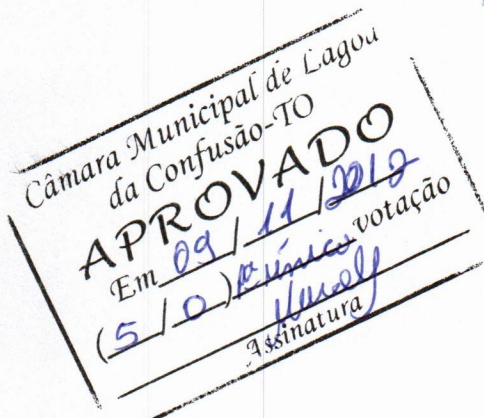 Câmara Municipal de Lagoa
da Confusão-TO
APROVADO
Em 09 / 11 / 2012
(5 / 0) única votação
Assinatura